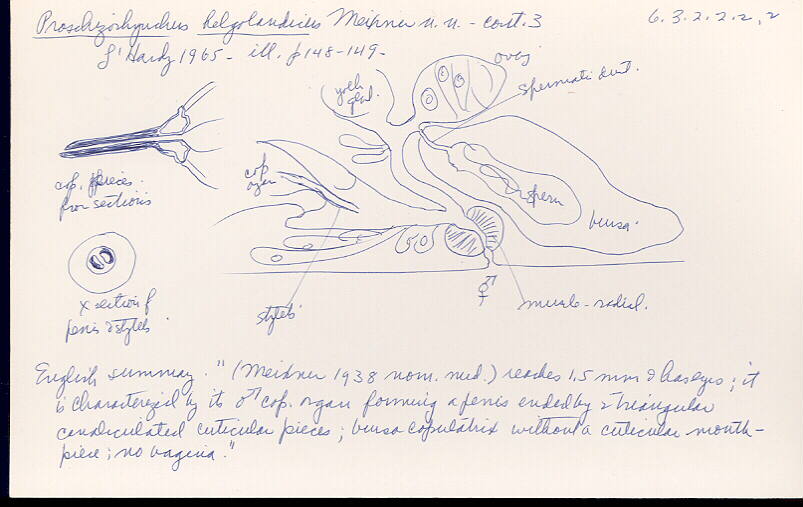 Proschizorhynchus helgolandicus Meixner n.n. - cont. 3
6.3.2.2.2.2
L'Hardy 1965 - ill. p148-149 -
ovary
yolk gland.
spermatic duct.
cop. organ
cop. pieces from sections
sperm
bursa
x section of penis & stylets
stylets
♂
♀
muscle-radial.
English summary. " (Meixner 1938 nom. nud.) reaches 1.5 mm & has eyes; it
is characterized by its ♂ cop. organ forming a penis ended by 2 triangular
canaliculated cuticular pieces; bursa copulatrix without a cuticular mouth-
piece; no vagina."